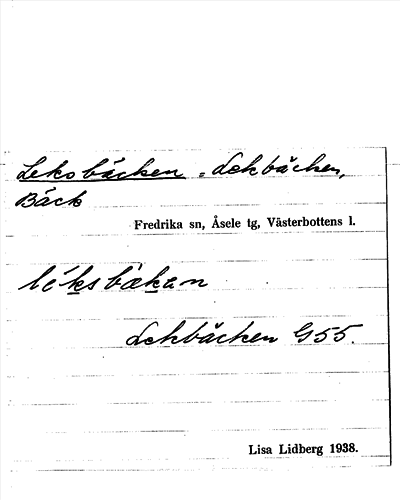 Leksbäcken, Lekbäcken,
Bäck
Fredrika sn, Åsele tg, Västerbottens l.
léksbäkan
Lekbäcken G55.
Lisa Lidberg 1938.